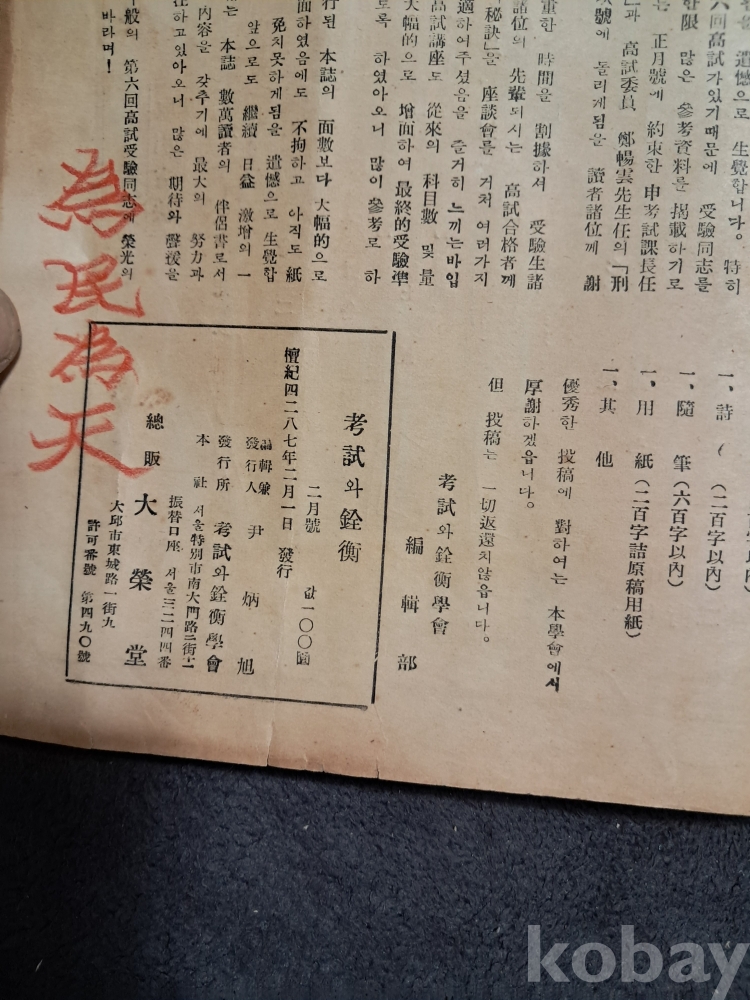 を 遺憾으로 生覺합니다。 特히
六回高試가있기때문에 受驗同志를
한限 많은 參考資料를 揭載하기로
는 正月號에 約束한 申考試課長任
」과 高試委員 鄭暢雲先生任의 「刑
次號에 돌리게됨을 讀者諸位께 謝
重한 時間을 割據하셔 受驗生諸
諸位의 先輩되시는 高試合格者께
秘訣」을 座談會를 거쳐 여러가지
適하여주셨음을 즐거히 느끼는바입
高試講座도 從來의 科目數 및 量
大幅的으로 增面하여 最終的受驗準
로록 하였아오니 많이 參考로 하
行된 本誌의 面數보다 大幅的으로
面하였음에도 不拘하고 아직도 紙
免치못하게됨을 遺憾으로 生覺합
앞으로도 繼續 日益 激增의 一
는 本誌 數萬讀者의 伴侶書로서
內容을 갖추기에 最大의 努力과
하고있아오니 많은 期待와 聲援을
般의 第六回高試受驗同志에 榮光의
바라며!
為民為天
一、詩 (二百字以內)
一、隨筆 (六百字以內)
一、用紙 (二百字詰原稿用紙)
一、其他
優秀한 投稿에 對하여는 本學會에서
厚謝하겠읍니다。
但 投稿는 一切返還치않읍니다。
考試와銓衡學會
編輯部
考試와銓衡
二月號 값一〇〇圜
檀紀四二八七年二月一日 發行
編輯兼
發行人 尹炳旭
發行所 考試와銓衡學會
本社 서울特別市南大門路二街十一
振替口座 서울三二四四番
總販 大榮堂
大邱市東城路一街九
許可番號 第四九〇號
kobay